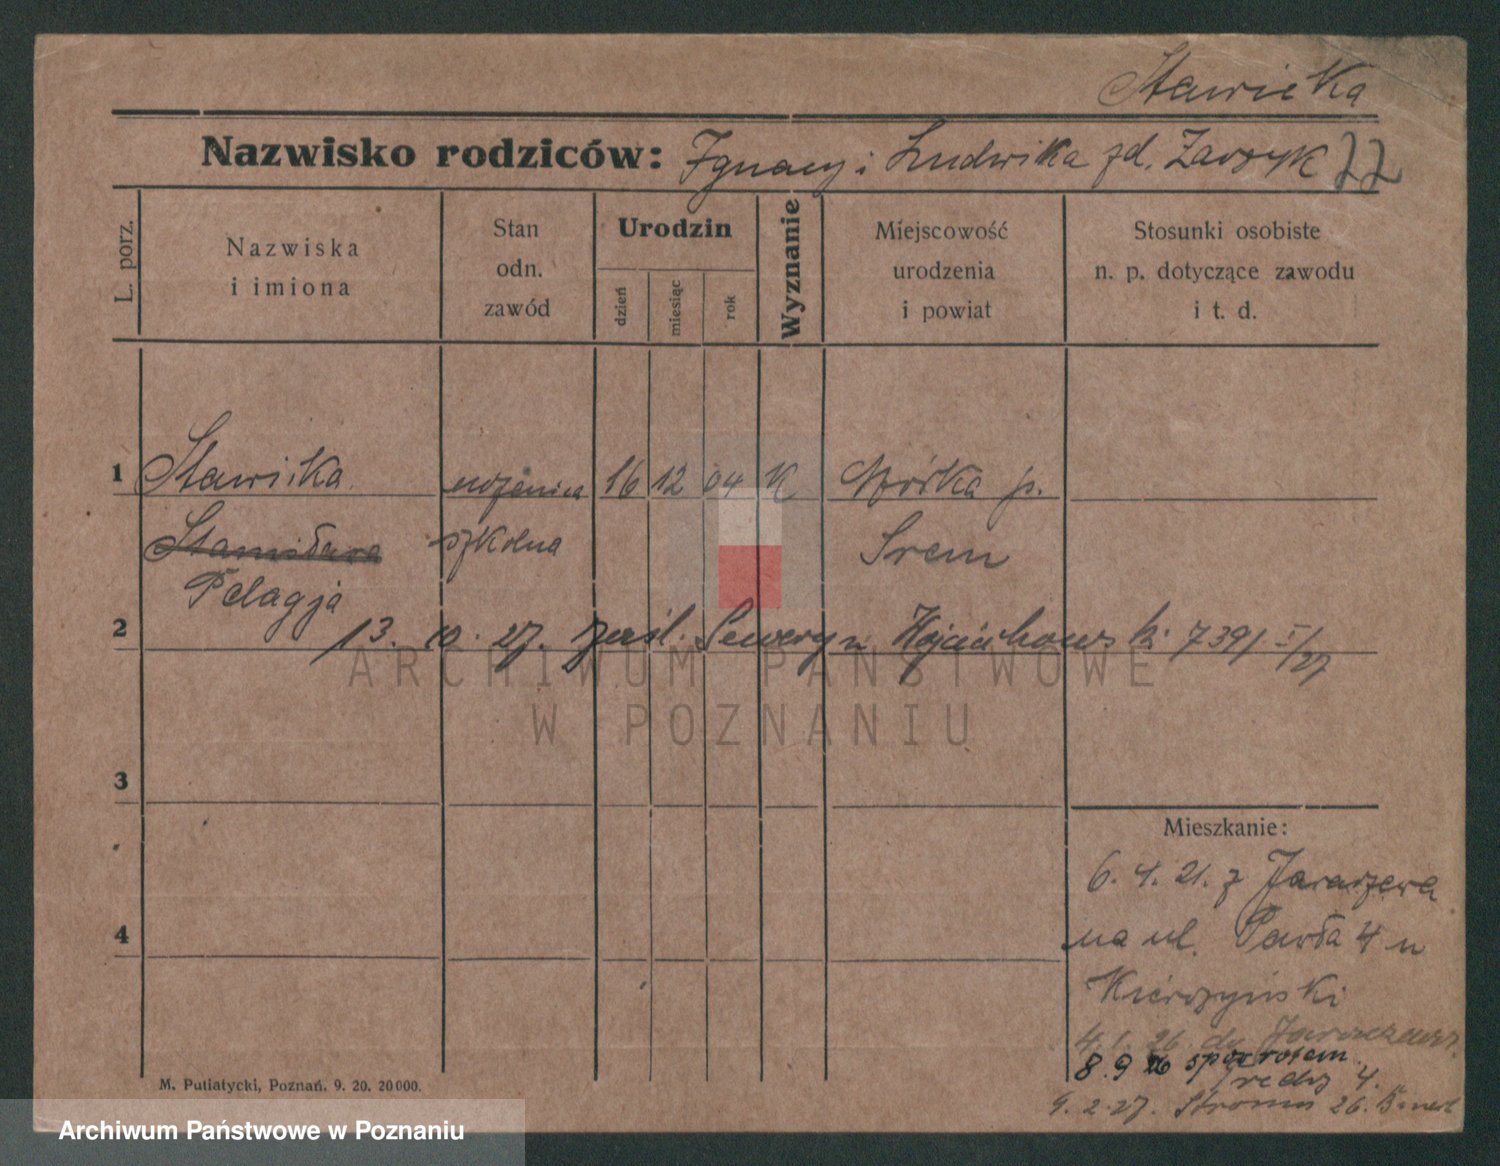 Stawicka
Nazwisko rodziców: Ignacy i Ludwika zd. Zawzyk 22
L. porz.
Nazwiska
i imiona
Stan
odn.
zawód
Urodzin
dzień
miesiąc
rok
Wyznanie
Miejscowość
urodzenia
i powiat
Stosunki osobiste
n. p. dotyczące zawodu
i t. d.
1 Stawicka uczenica 16 12 04 K Mórka p.
Stanisława szkolna Śrem
Pelagja
2 13. 10. 27. zaśl. Seweryn Wojciechowski 739/I/27
3
Mieszkanie:
6. 4. 21. z Jaraczewa
4 na ul. Pawła 4 u
Kierszyński
4. 1. 26. do Jaraczewa
8. 9 26 spowrotem
4.
9. 2. 27. Stroma 26.
M. Putiatycki, Poznań. 9. 20. 20000.
ARCHIWUM PAŃSTWOWE
W POZNANIU
Archiwum Państwowe w Poznaniu